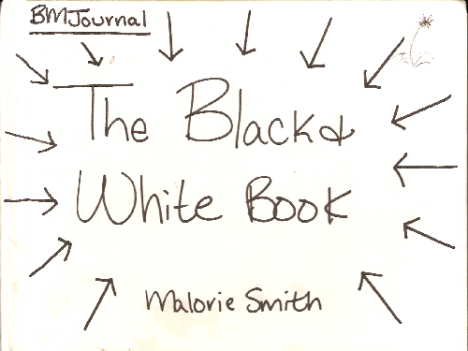 BMJournal
The Black &
White Book
Malorie Smith